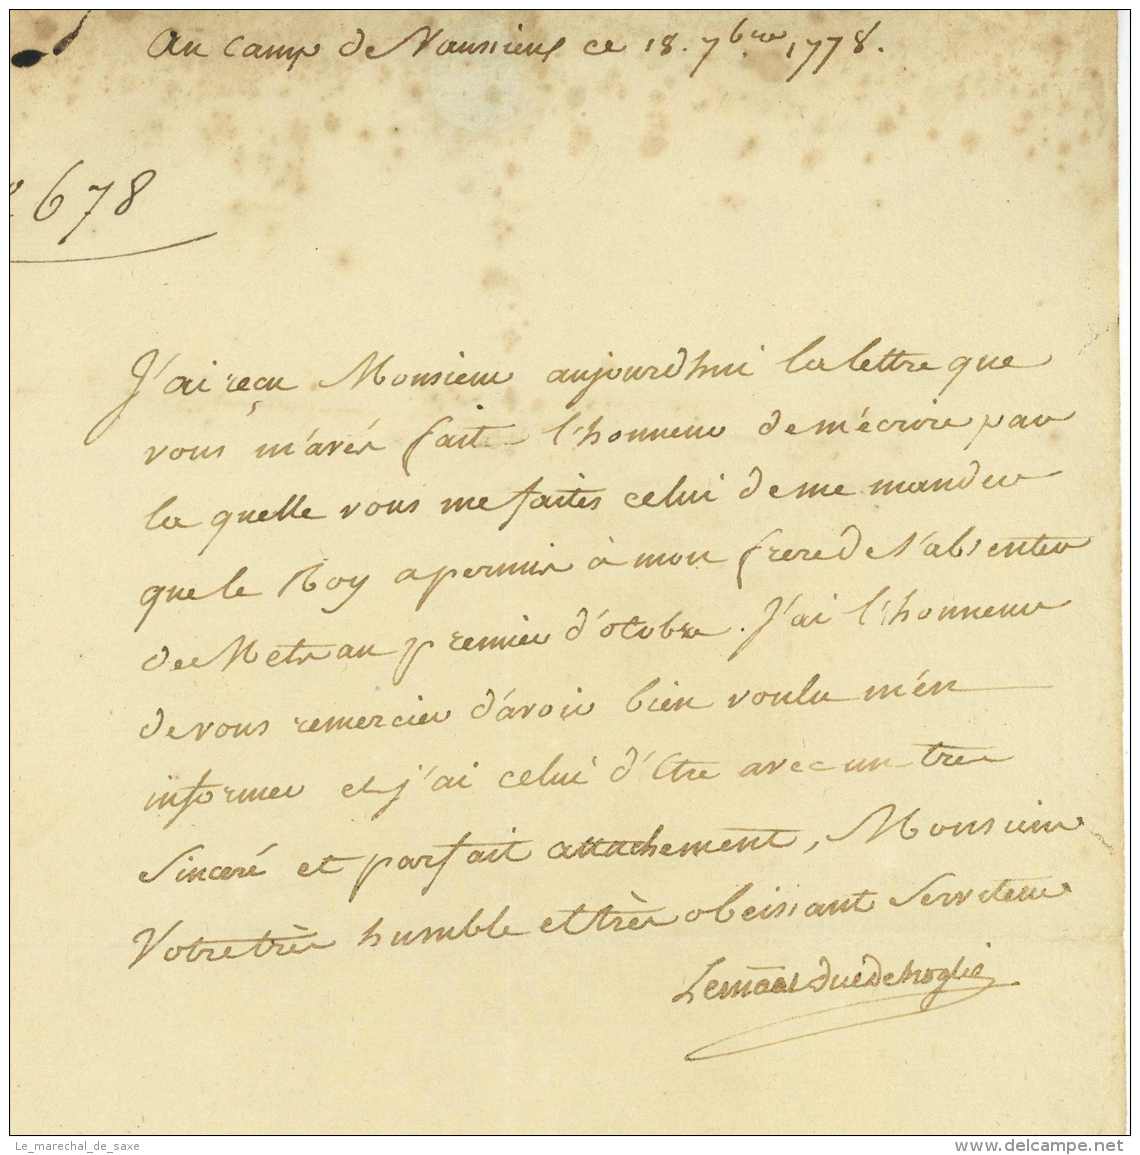 au camp de Vaussieux ce 18. 7bre 1778.
678
J'ai reçu Monsieur aujourd'hui la lettre que
vous m'avés fait l'honneur de m'écrire par
la quelle vous me faites celui de me mander
que le Roy a permis à mon frere de s'absenter
de Metz au premier d'octobre. J'ai l'honneur
de vous remercier d'avoir bien voulu m'en
informer et j'ai celui d'etre avec un tres
sinceré et parfait attachement, Monsieur
Votre très humble et très obeissant Serviteur
Le mâal duc de broglie
Le_marechal_de_saxe
www.delcampe.net